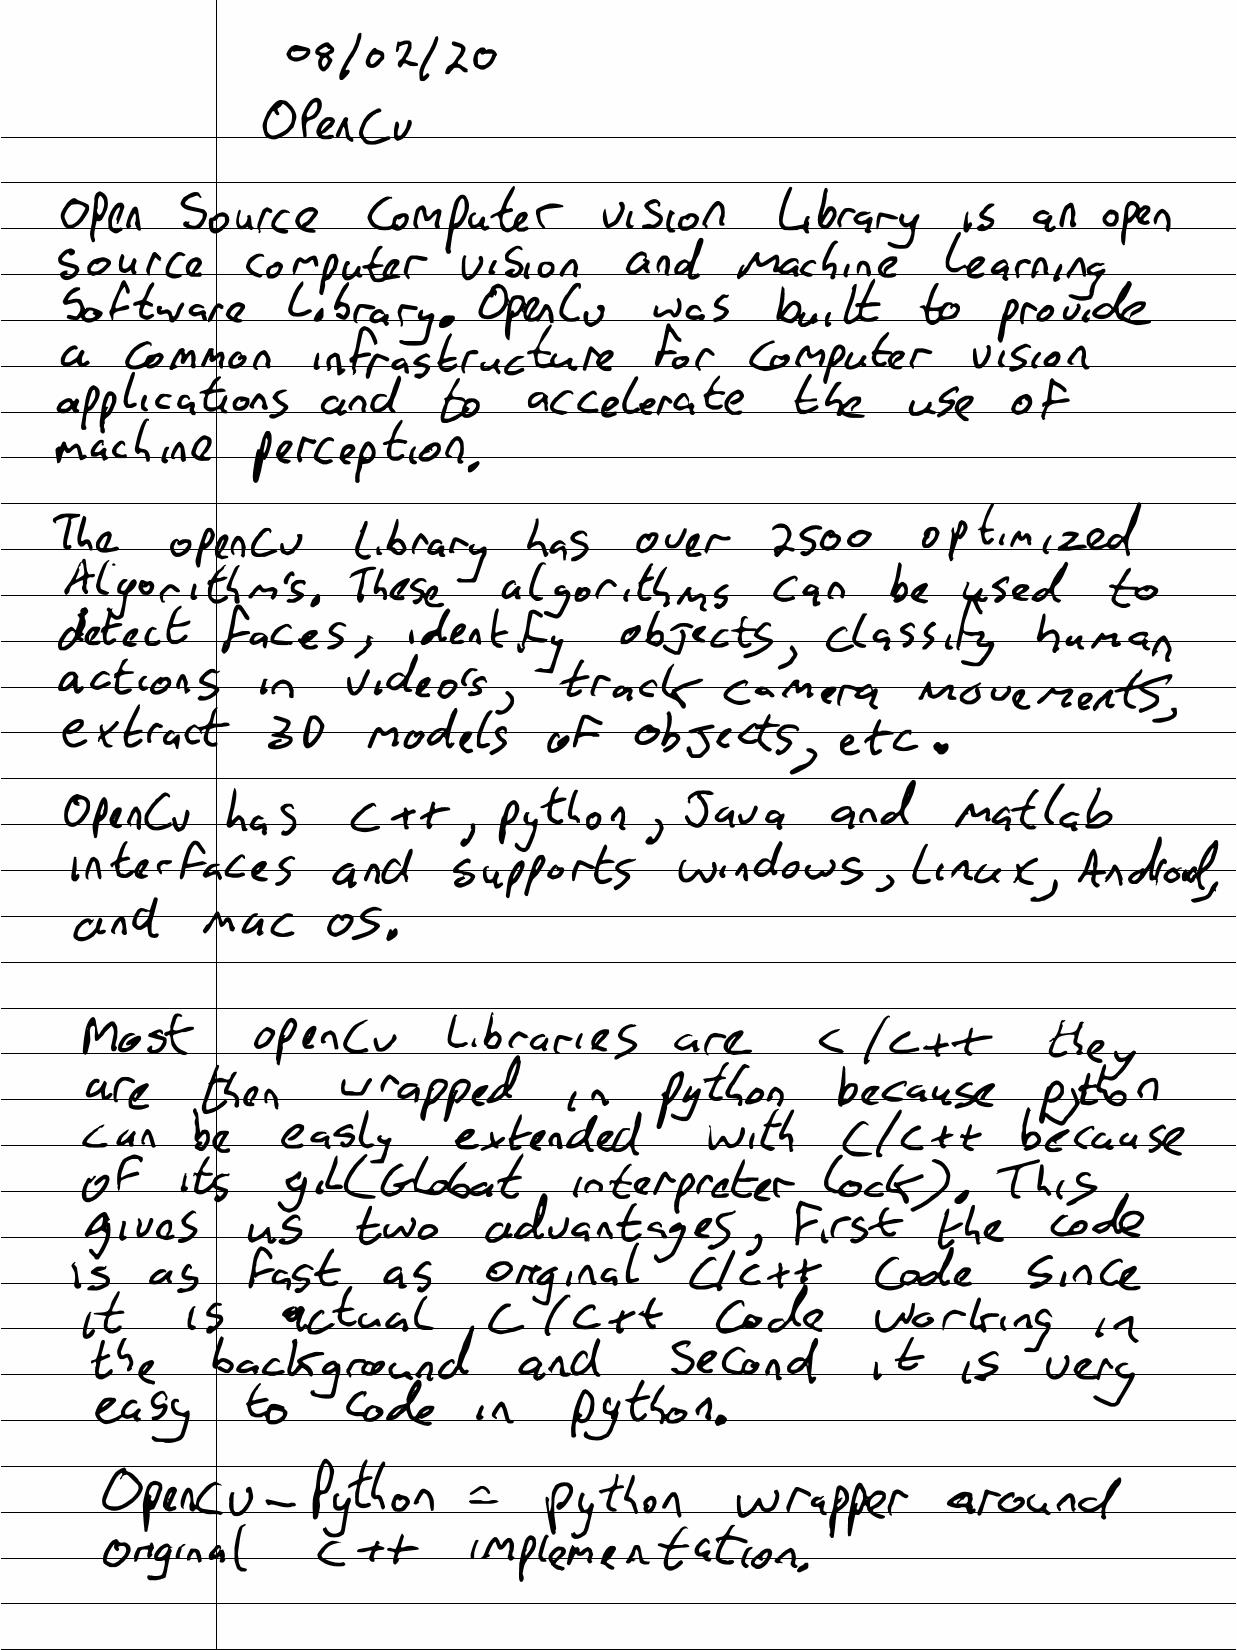 08/02/20
OpenCv
Open Source Computer vision Library is an open
source computer vision and machine learning
Software Library. OpenCv was built to provide
a common infrastructure for computer vision
applications and to accelerate the use of
machine perception.
The openCv Library has over 2500 optimized
Algorithm's. These algorithms can be used to
detect faces, identify objects, classify human
actions in video's, track camera movements,
extract 3D models of objects, etc.
OpenCv has C++, python, Java and matlab
interfaces and supports windows, Linux, Android,
and mac OS.
Most openCv Libraries are C/C++ they
are then wrapped in python because python
can be easly extended with C/C++ because
of its gil(Global interpreter lock). This
gives us two advantages, first the code
is as fast as original C/C++ code since
it is actual C/C++ code working in
the background and second it is very
easy to code in python.
OpenCv-Python = python wrapper around
original C++ implementation.